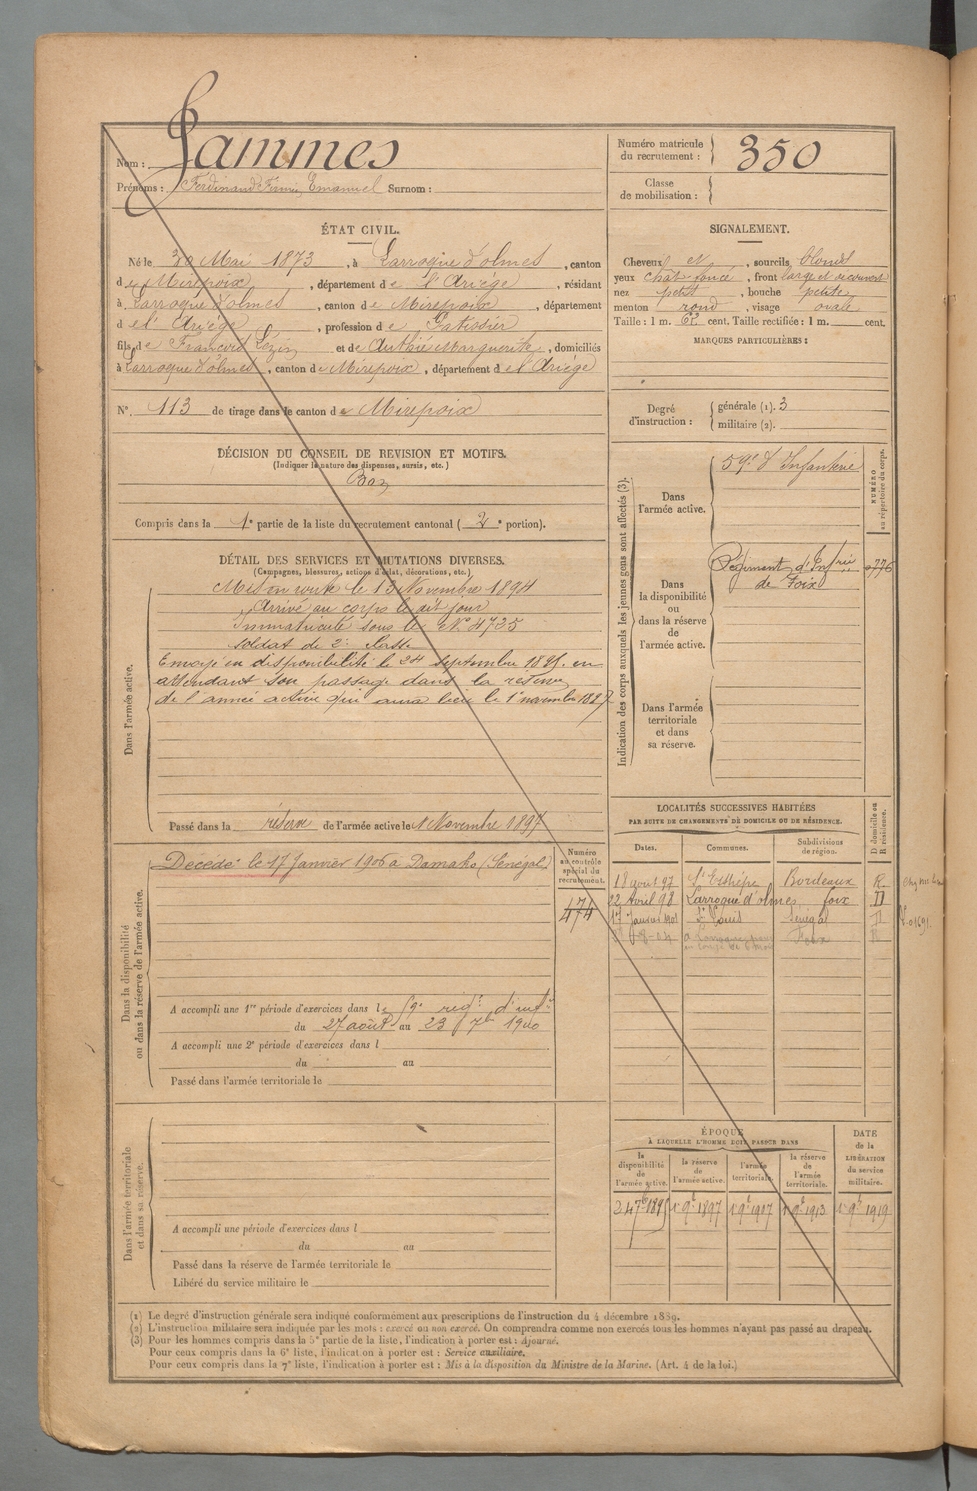 Nom : Jammes
Prénoms : Ferdinand Firmin Emanuel Surnom :
Numéro matricule du recrutement : 350
Classe de mobilisation :
ÉTAT CIVIL.
Né le 30 Mai 1873, à Larroque d'olmes, canton
de Mirepoix, département de l'Ariége, résidant
à Larroque d'olmes, canton de Mirepoix, département
de l'Ariége, profession de Patissier
fils de François Lézin et de Authié Marguerite, domiciliés
à Larroque d'olmes, canton de Mirepoix, département de l'Ariége
N°. 113 de tirage dans le canton de Mirepoix
SIGNALEMENT.
Cheveux et, sourcils blonds
yeux chât foncé, front large et découvert
nez petit, bouche petite
menton rond, visage ovale
Taille : 1 m. 62 cent. Taille rectifiée : 1 m. cent.
MARQUES PARTICULIÈRES :
Degré d'instruction : générale (1). 3
militaire (2).
DÉCISION DU CONSEIL DE REVISION ET MOTIFS.
(Indiquer la nature des dispenses, sursis, etc.)
Bon
Compris dans la 1e partie de la liste du recrutement cantonal (2e portion).
DÉTAIL DES SERVICES ET MUTATIONS DIVERSES.
(Campagnes, blessures, actions d'éclat, décorations, etc.)
Dans l'armée active.
Mis en route le 13 Novembre 1894
Arrivé au corps le dit jour
Immatriculé sous le N° 4735
soldat de 2e classe
Envoyé en disponibilité le 24 septembre 1895 en
attendant son passage dans la réserve
de l'armée active qui aura lieu le 1er novembre 1897
Passé dans la réserve de l'armée active le 1 Novembre 1897
Indication des corps auxquels les jeunes gens sont affectés (3).
NUMÉRO au répertoire du corps.
Dans l'armée active.
59e d'Infanterie
Dans la disponibilité ou dans la réserve de l'armée active.
Régiment d'Infrie
de Foix
Dans l'armée territoriale et dans sa réserve.
Dans la disponibilité ou dans la réserve de l'armée active.
Décédé le 17 Janvier 1906 à Damako (Sénégal)
Numéro au contrôle spécial du recrutement.
474
A accompli une 1re période d'exercices dans le 59e regt d'inft
du 27 août au 23 7bre 1900
A accompli une 2e période d'exercices dans l
du au
Passé dans l'armée territoriale le
LOCALITÉS SUCCESSIVES HABITÉES
PAR SUITE DE CHANGEMENTS DE DOMICILE OU DE RÉSIDENCE.
Dates. Communes. Subdivisions de région. D domicile ou R résidence.
18 août 97 St Esthèpe Bordeaux R
22 Avril 98 Larroque d'olmes foix D
17 Janvier 1901 St Louis Sénégal
Foix
Dans l'armée territoriale et dans sa réserve.
A accompli une période d'exercices dans l
du au
Passé dans la réserve de l'armée territoriale le
Libéré du service militaire le
ÉPOQUE
À LAQUELLE L'HOMME DOIT PASSER DANS
la disponibilité de l'armée active. la réserve de l'armée active. l'armée territoriale. la réserve de l'armée territoriale. DATE de la LIBÉRATION du service militaire.
24 7b 1895 1r 9b 1897 1r 9b 1907 1r 9b 1913 1r 9b 1919
(1) Le degré d'instruction générale sera indiqué conformément aux prescriptions de l'instruction du 4 décembre 1889.
(2) L'instruction militaire sera indiquée par les mots : exercé ou non exercé. On comprendra comme non exercés tous les hommes n'ayant pas passé au drapeau.
(3) Pour les hommes compris dans la 5e partie de la liste, l'indication à porter est : Ajourné.
Pour ceux compris dans la 6e liste, l'indication à porter est : Service auxiliaire.
Pour ceux compris dans la 7e liste, l'indication à porter est : Mis à la disposition du Ministre de la Marine. (Art. 4 de la loi.)